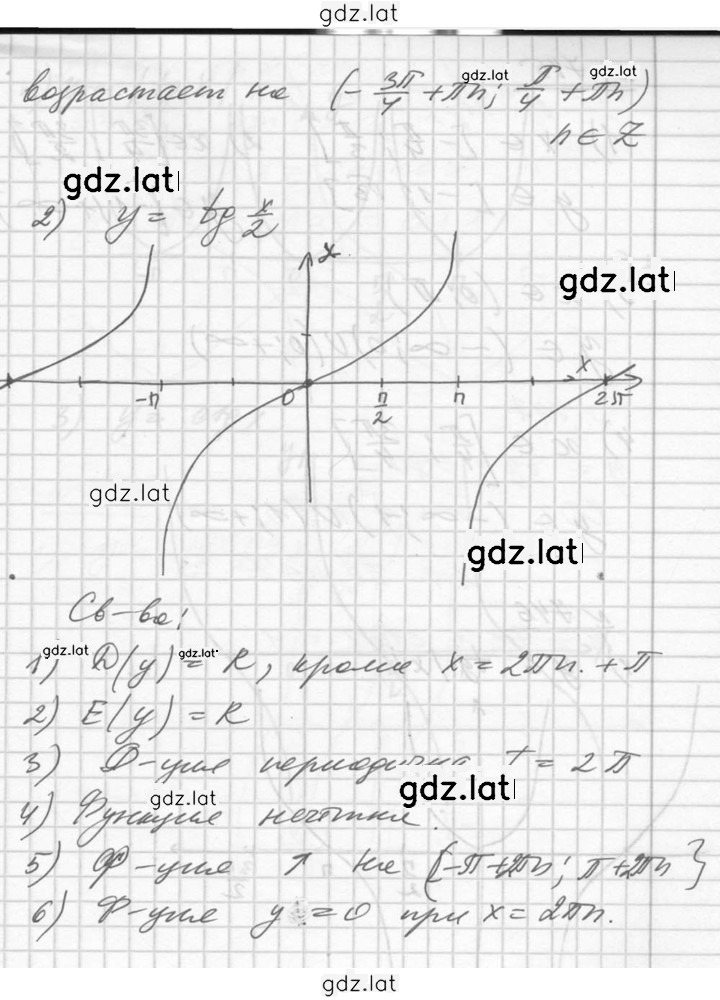 gdz.lat
возрастает на (-3π/4 + πn; π/4 + πn)
gdz.lat gdz.lat
n ∈ Z
gdz.lat
2) y = tg x/2
y
gdz.lat
x
-π 0 π/2 π 2π
gdz.lat
gdz.lat
Св-ва:
gdz.lat gdz.lat
1) D(y) = R, кроме x = 2πn. + π
2) E(y) = R
3) Ф-ция периодична T = 2π
gdz.lat gdz.lat
4) Функция нечётная.
5) Ф-ция ↑ на (-π+2πn; π+2πn}
6) Ф-ция y = 0 при x = 2πn.
gdz.lat